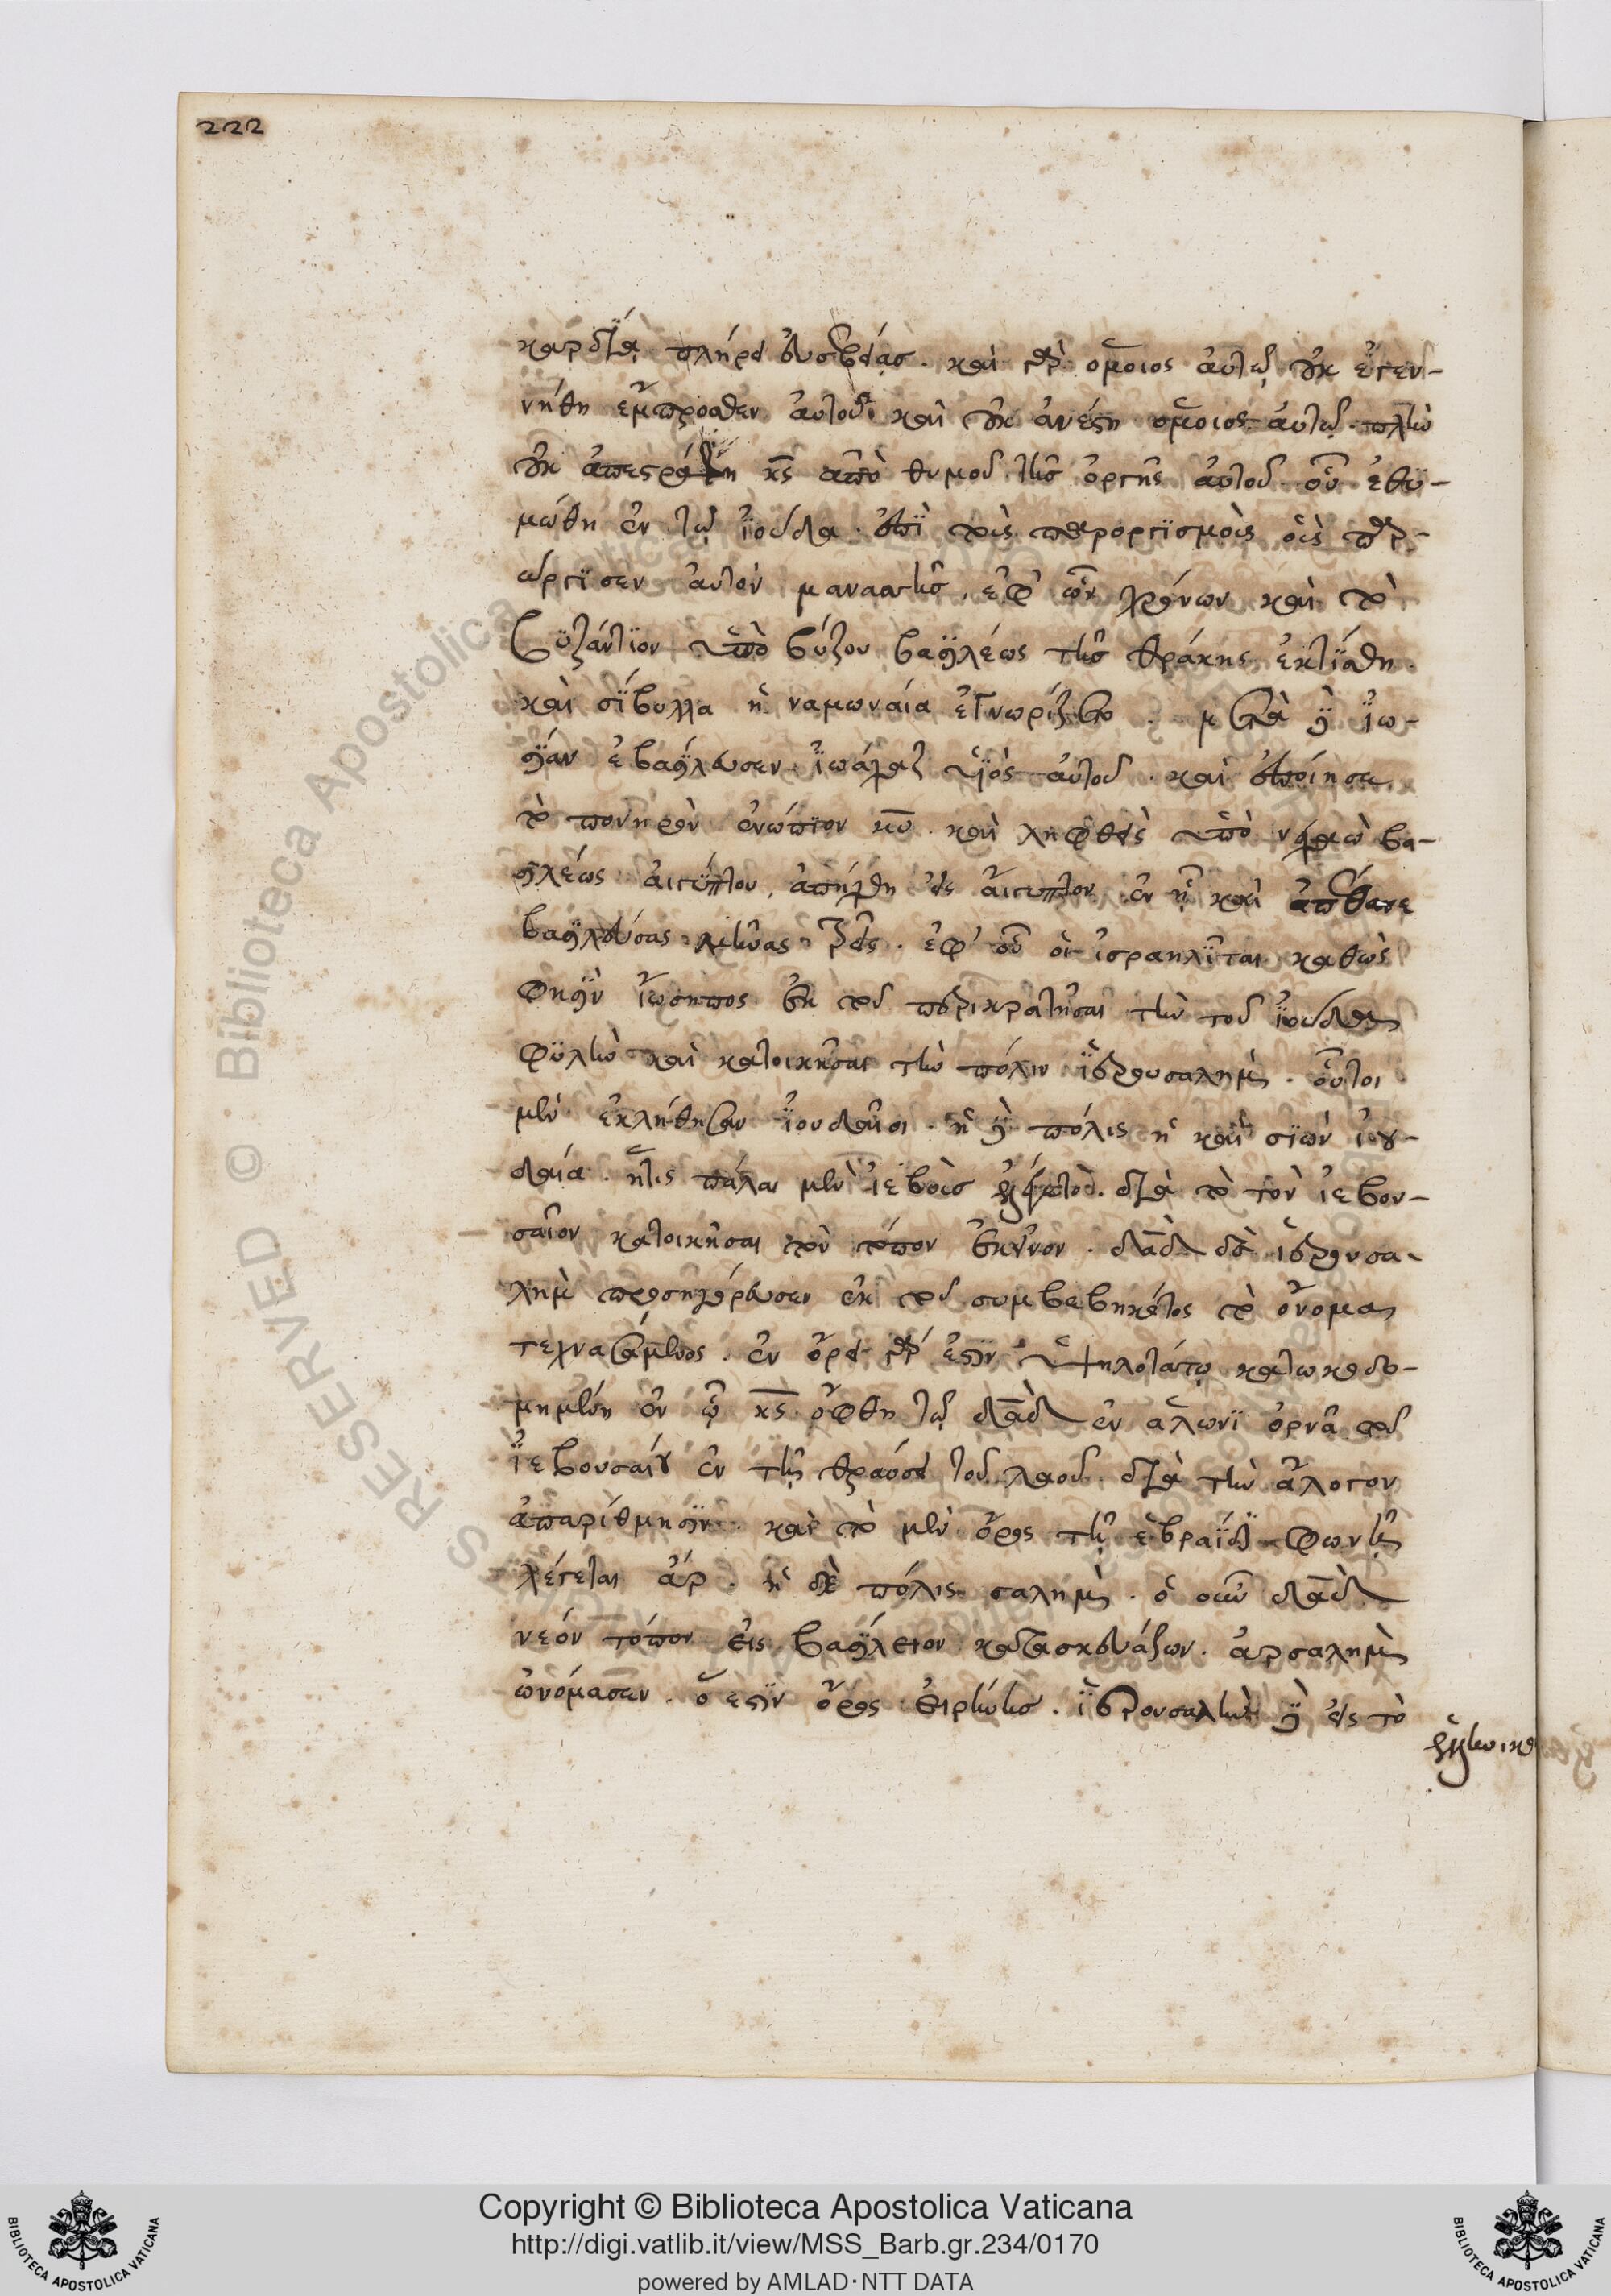 222
καρδΐᾳ πλήρει εὐσεβείας. καὶ γὰρ ὅμοιος αὐτῷ οὐκ ἐγεν-
νήθη ἔμπροσθεν αὐτοῦ· καὶ οὐκ ἀνέστη ὅμοιος αὐτῷ. πλὴν
οὐκ ἀπεστράφη κς ἀπὸ θυμοῦ τῆς ὀργῆς αὐτοῦ οὗ ἐθυ-
μώθη ἐν τῷ ἰούδα. ἐπὶ τοῖς παροργϊσμοῖς οἷς παρ-
ώργϊσεν αὐτὸν μανασσῆς, ἐφ' ὧν χρόνων καὶ τὸ
βυζάντϊον ὑπὸ βύζου βασιλέως τῆς θράκης ἐκτίσθη.
καὶ σίβυλλα ἡ ναμωναία ἐγνωρίζετο. μετὰ δὲ ἰω-
σίαν ἐβασίλευσεν ἰωάχαζ υἱὸς αὐτοῦ. καὶ ἐποίησε
τὸ πονηρὸν ἐνώπϊον κυ. καὶ ληφθεὶς ὑπὸ νεχαὼ βα-
σιλέως αἰγύπτου, ἀπήχθη εἰς αἴγυπτον ἐν ᾗ καὶ ἀπέθανε
βασιλεύσας μῆνας τρεῖς. ἐφ' οὗ οἱ ἰσραηλῖται καθὼς
φησὶν ἰώσηπος ἐκ τοῦ περικρατῆσαι τὴν τοῦ ἰούδα
φυλὴν καὶ κατοικῆσαι τὴν πόλιν ἱερουσαλήμ. οὗτοι
μὲν ἐκλήθησαν ἰουδαῖοι. ἡ δὲ πόλις ἡ καὶ σιὼν ἰου-
δαία. ἥτις πάλαι μὲν ἰεβοὺς ἐλέγετο. διὰ τὸ τὸν ἰεβου-
σαῖον κατοικῆσαι τὸν τόπον ἐκεῖνον. δαδ δὲ ἱερουσα-
λὴμ προσηγόρευσεν ἐκ τοῦ συμβεβηκότος τὸ ὄνομα
τεχνασάμενος. ἐν ὄρει γάρ ἐστὶν ὑψηλοτάτῳ κατῳκοδο-
μημένη ἐν ᾧ κς ὤφθη τῷ δαδ ἐν ἅλωνι ὀρνᾶ τοῦ
ἰεβουσαίου ἐν τῇ θραύσει τοῦ λαοῦ. διὰ τὴν ἄλογον
ἀπαρίθμησιν. καὶ τὸ μὲν ὄρος τῇ ἑβραΐδι φωνῇ
λέγεται ἀρ. ἡ δὲ πόλις σαλήμ. ὁ οὖν δαδ
νεὸν τόπον εἰς βασίλειον κατασκευάζων. ἀρσαλὴμ
ὠνόμασεν. ὅ ἐστὶν ὄρος εἰρήνης. ἱερουσαλὴμ δὲ εἰς τὸ
ἑλληνικὸ
Copyright © Biblioteca Apostolica Vaticana
http://digi.vatlib.it/view/MSS_Barb.gr.234/0170
powered by AMLAD·NTT DATA
BIBLIOTECA APOSTOLICA VATICANA
BIBLIOTECA APOSTOLICA VATICANA